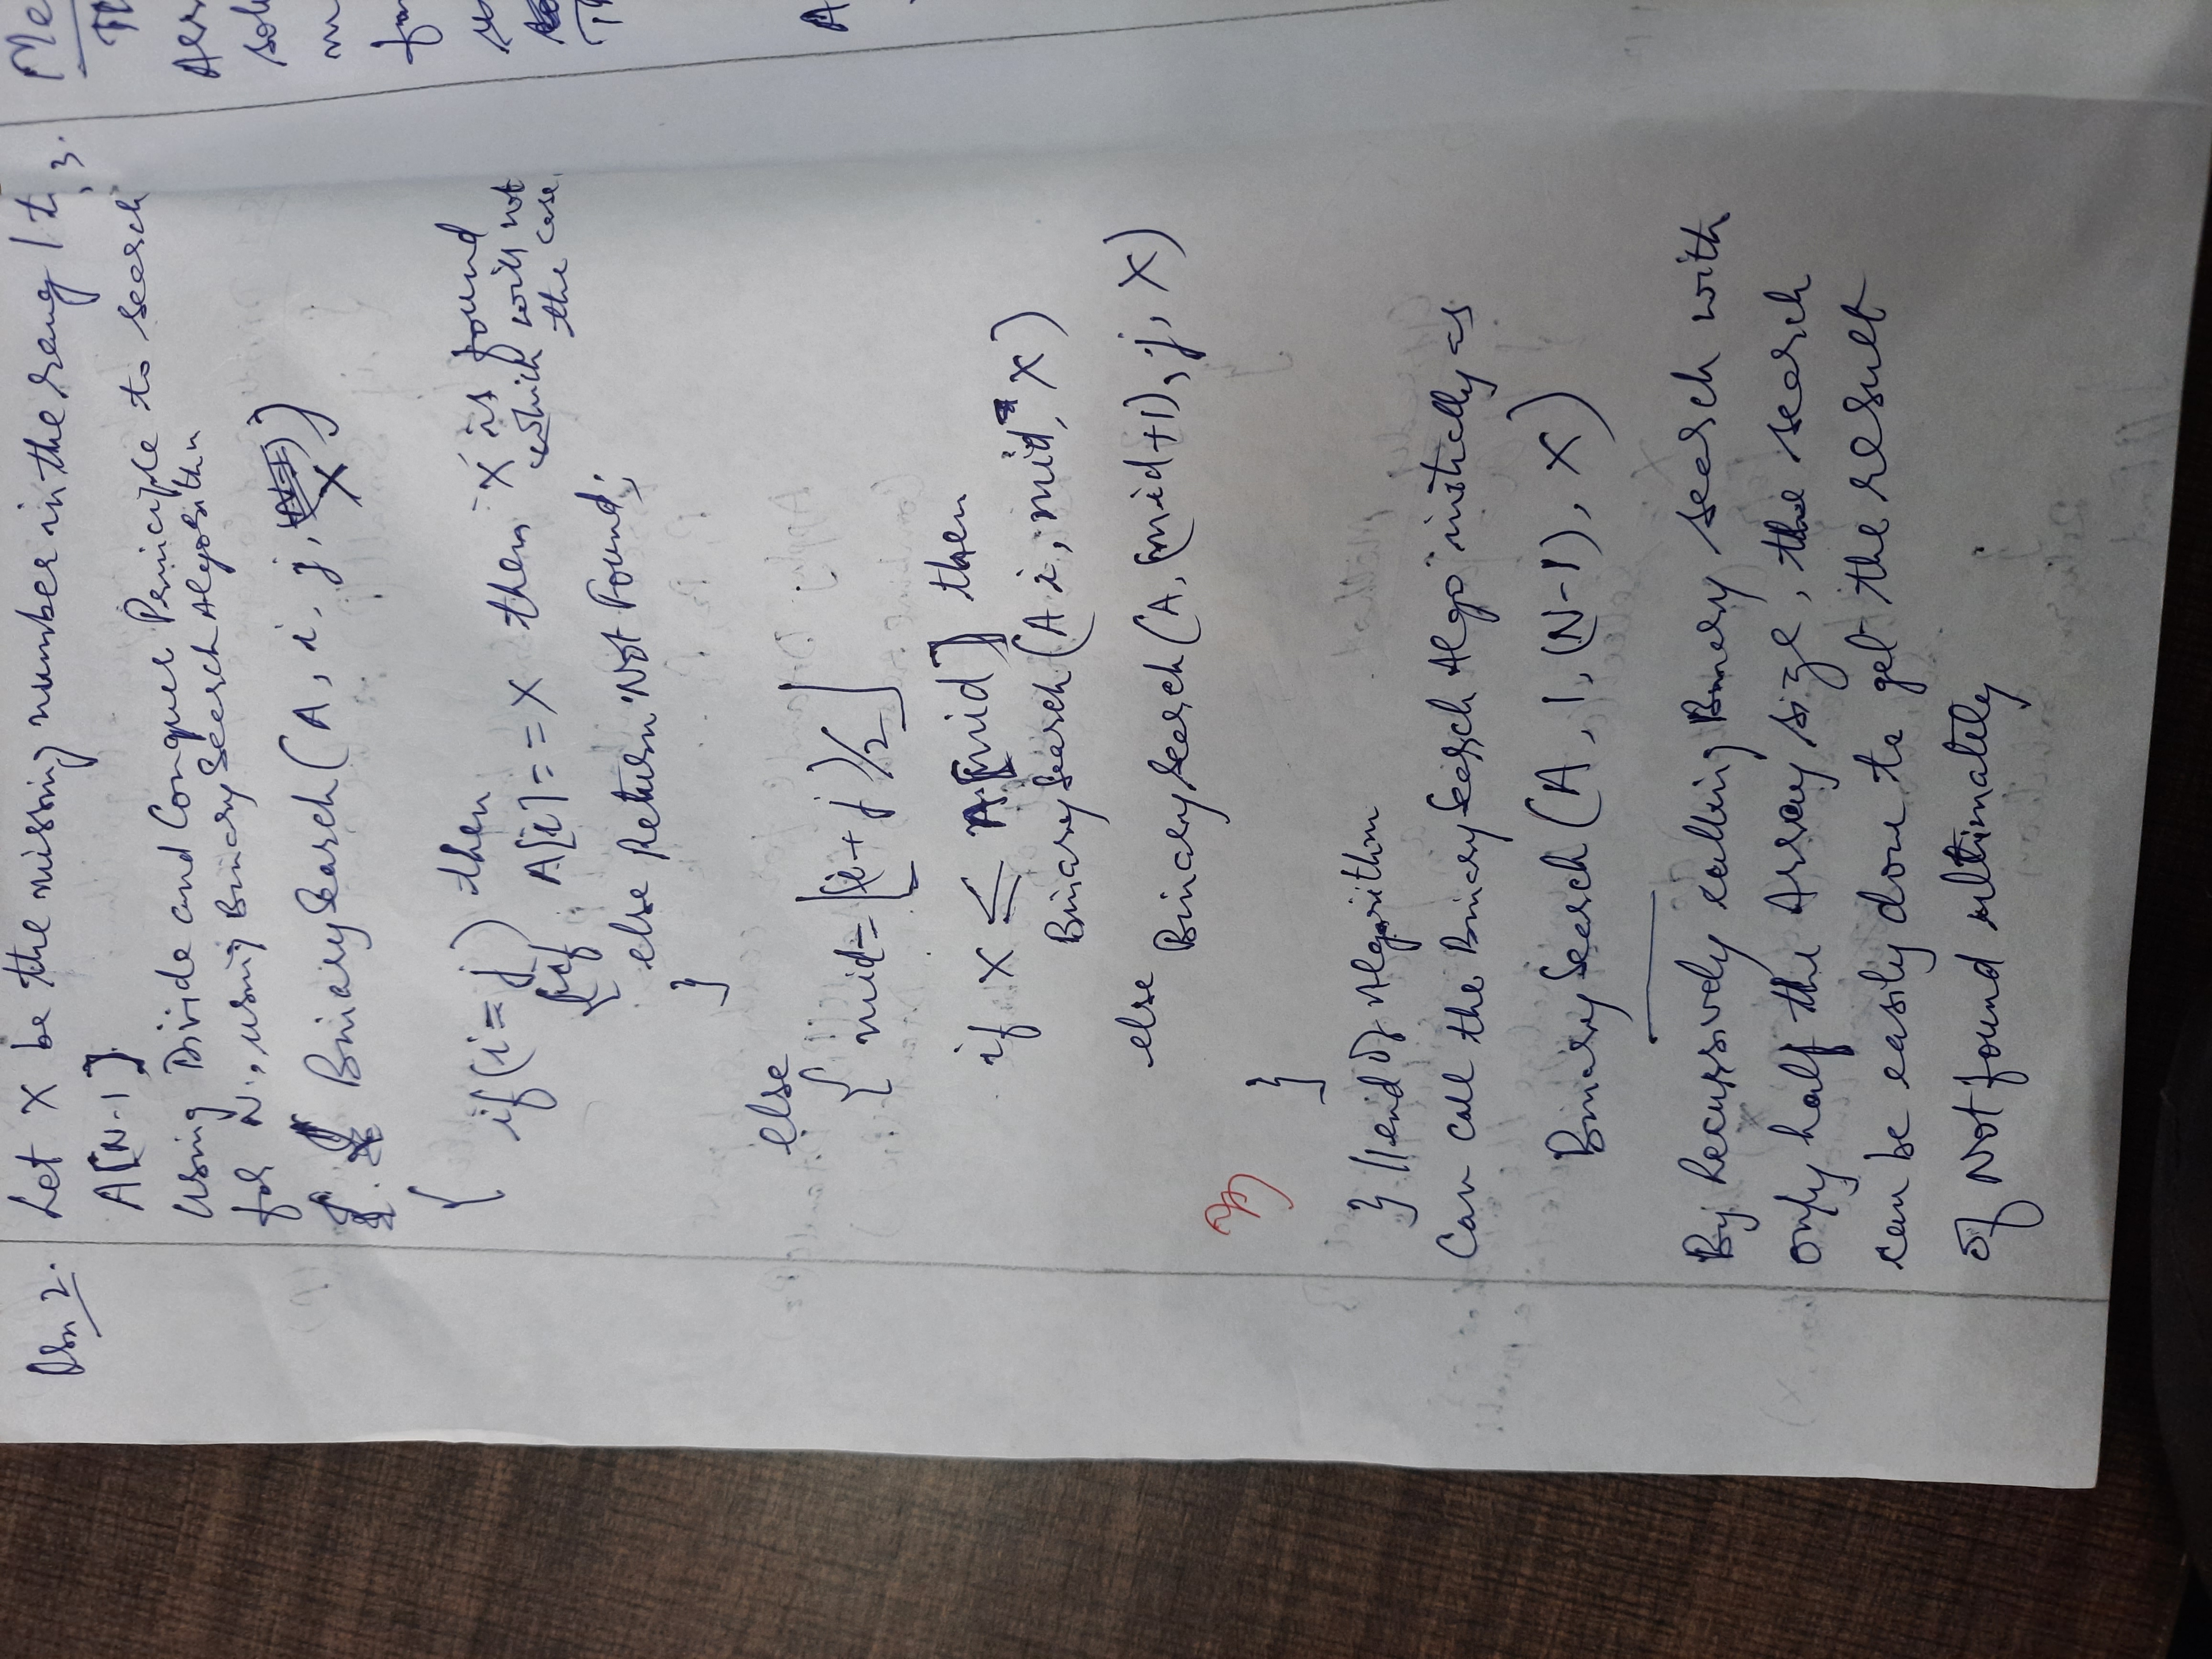 Qsn 2. Let X be the missing number in the rang 1 to
A[N-1]
Using Divide and Conquer Principle to search
for N., using Binary Search Algorithm
Binary Search (A, i, j, X)
{
if (i = j) then
{ if A[i] == X then X is found
which will not
the case.
else Return Not Found;
}
else
{ mid = ⌊(i + j)/2⌋
if X ≤ A[mid] then
Binary Search (A i, mid, X)
else
Binary Search (A, (mid+1), j, X)
}
} // end of Algorithm
Can call the Binary Search Algo initially as
Binary Search (A, 1, (N-1), X)
By Recursively calling Binary search with
only half the Array size, the search
can be easily done to get the result
of Not found ultimately
3.
Me
Th
Arr
sol
m
for
Th
A